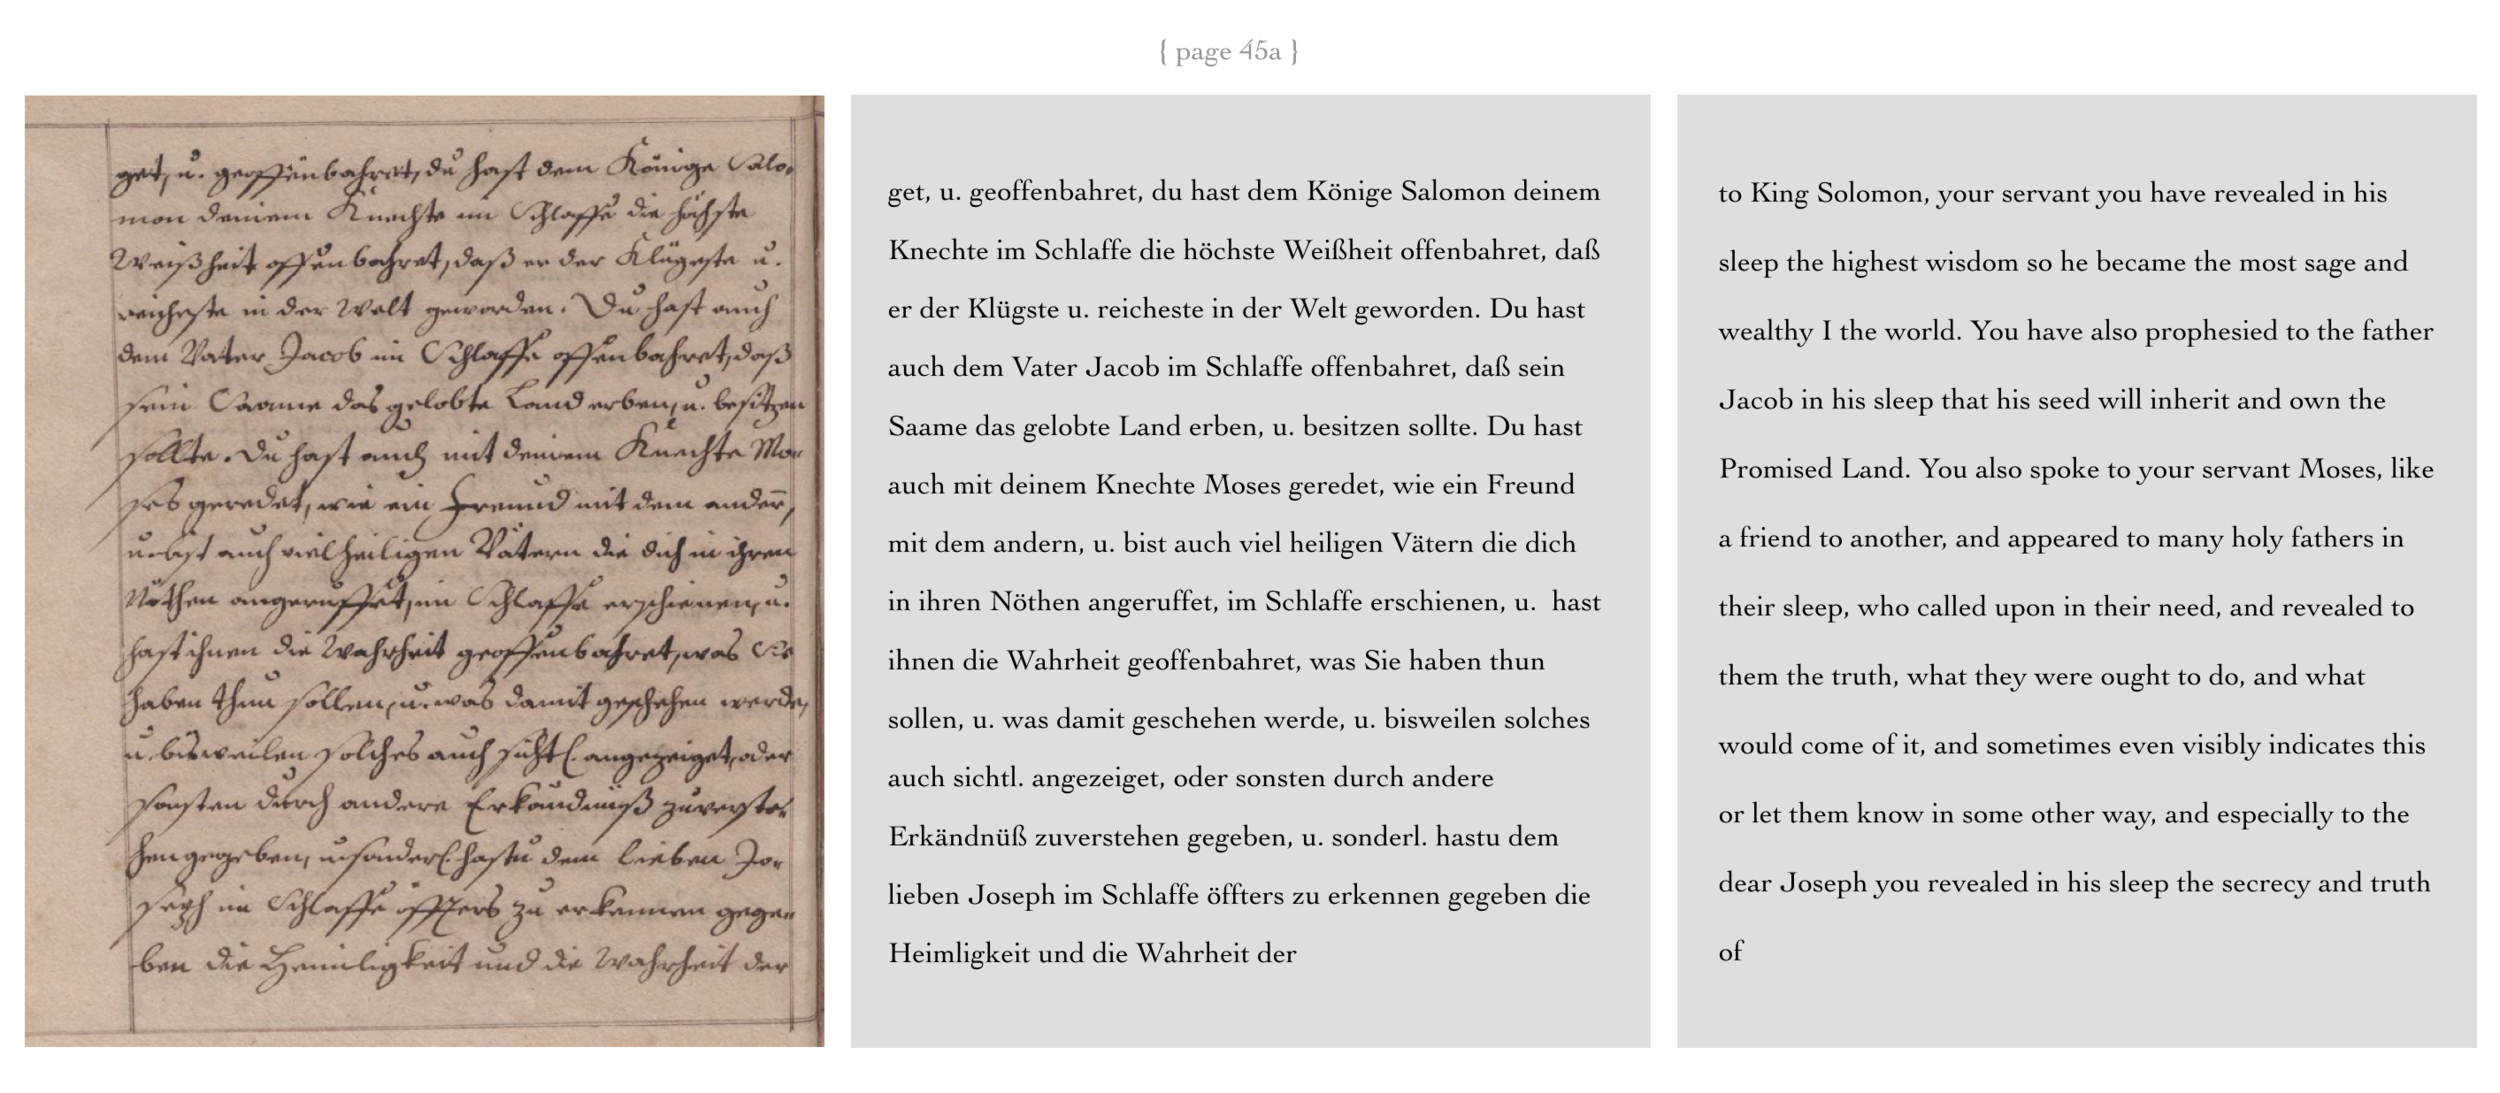 { page 45a }
get, u. geoffenbahret, du hast dem Könige Salo-
mon deinem Knechte im Schlaffe die höchste
Weißheit offenbahret, daß er der Klügeste u.
reicheste in der Welt geworden. Du hast auch
dem Vater Jacob im Schlaffe offenbahret, daß
sein Saame das gelobte Land erben, u. besitzen
sollte. Du hast auch mit deinem Knechte Mo-
ses geredet, wie ein Freund mit dem andern,
u. bist auch viel heiligen Vätern die dich in ihren
Nöthen angeruffet, im Schlaffe erschienen, u.
hast ihnen die Wahrheit geoffenbahret, was Sie
haben thun sollen, u. was damit geschehen werde,
u. bisweilen solches auch sichtl. angezeiget, oder
sonsten durch andere Erkändnüß zuverste-
hen gegeben, u. sonderl. hastu dem lieben Jo-
seph im Schlaffe öffters zu erkennen gege-
ben die Heimligkeit und die Wahrheit der
get, u. geoffenbahret, du hast dem Könige Salomon deinem
Knechte im Schlaffe die höchste Weißheit offenbahret, daß
er der Klügste u. reicheste in der Welt geworden. Du hast
auch dem Vater Jacob im Schlaffe offenbahret, daß sein
Saame das gelobte Land erben, u. besitzen sollte. Du hast
auch mit deinem Knechte Moses geredet, wie ein Freund
mit dem andern, u. bist auch viel heiligen Vätern die dich
in ihren Nöthen angeruffet, im Schlaffe erschienen, u.  hast
ihnen die Wahrheit geoffenbahret, was Sie haben thun
sollen, u. was damit geschehen werde, u. bisweilen solches
auch sichtl. angezeiget, oder sonsten durch andere
Erkändnüß zuverstehen gegeben, u. sonderl. hastu dem
lieben Joseph im Schlaffe öffters zu erkennen gegeben die
Heimligkeit und die Wahrheit der
to King Solomon, your servant you have revealed in his
sleep the highest wisdom so he became the most sage and
wealthy I the world. You have also prophesied to the father
Jacob in his sleep that his seed will inherit and own the
Promised Land. You also spoke to your servant Moses, like
a friend to another, and appeared to many holy fathers in
their sleep, who called upon in their need, and revealed to
them the truth, what they were ought to do, and what
would come of it, and sometimes even visibly indicates this
or let them know in some other way, and especially to the
dear Joseph you revealed in his sleep the secrecy and truth
of